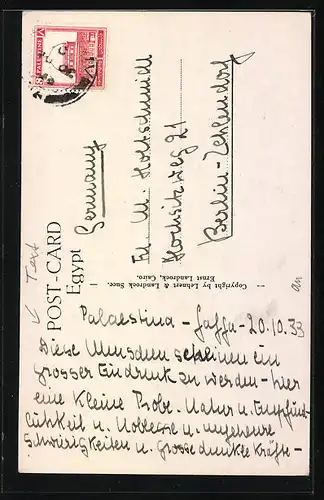 PALESTINE
Text
POST-CARD
Egypt
Germany
Frl. M. Holtschmidt
Hochsitzweg 21
Berlin-Zehlendorf
-- Copyright by Lehnert & Landrock Succ. --
Ernst Landrock, Cairo.
Palaestina - Jaffa - 20.10.33
Diese Menschen scheinen ein
grosser Eindruck zu werden - hier
eine kleine Probe. Natur u. Empfind-
lichkeit u. Noblesse u. ungeheure
Schwierigkeiten u. grosse dunkle Kräfte -